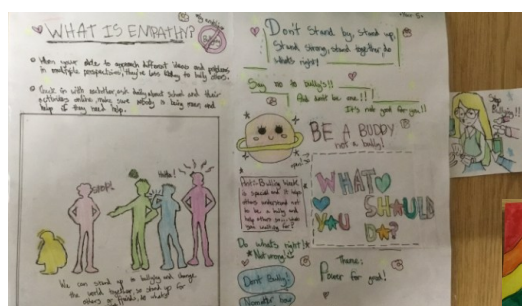 WHAT IS EMPATHY?
When your able to approach different ideas and problems
in multiple perspectives, they're less likely to bully others.
Check in with eachother, ask daily about school and their
activities online, make sure nobody is being mean and
help if they need help.
Haha!
We can stand up to bullying and change
the world together, so stand up for
others or friends, do what's
Don't stand by, stand up,
Stand strong, stand together, do
what's right!
Say no to bully's!!
And don't be one!!
It's not good for you!!
BE A BUDDY
not a bully!
Anti-Bullying Week
is special and it helps
others understand not
to be a bully and
help others so
you waiting for?
WHAT
SHOULD
YOU
DO?
Do what's right!
Not wrong!
Don't Bully!
Theme:
Power for good!
Stop
Bullying!!